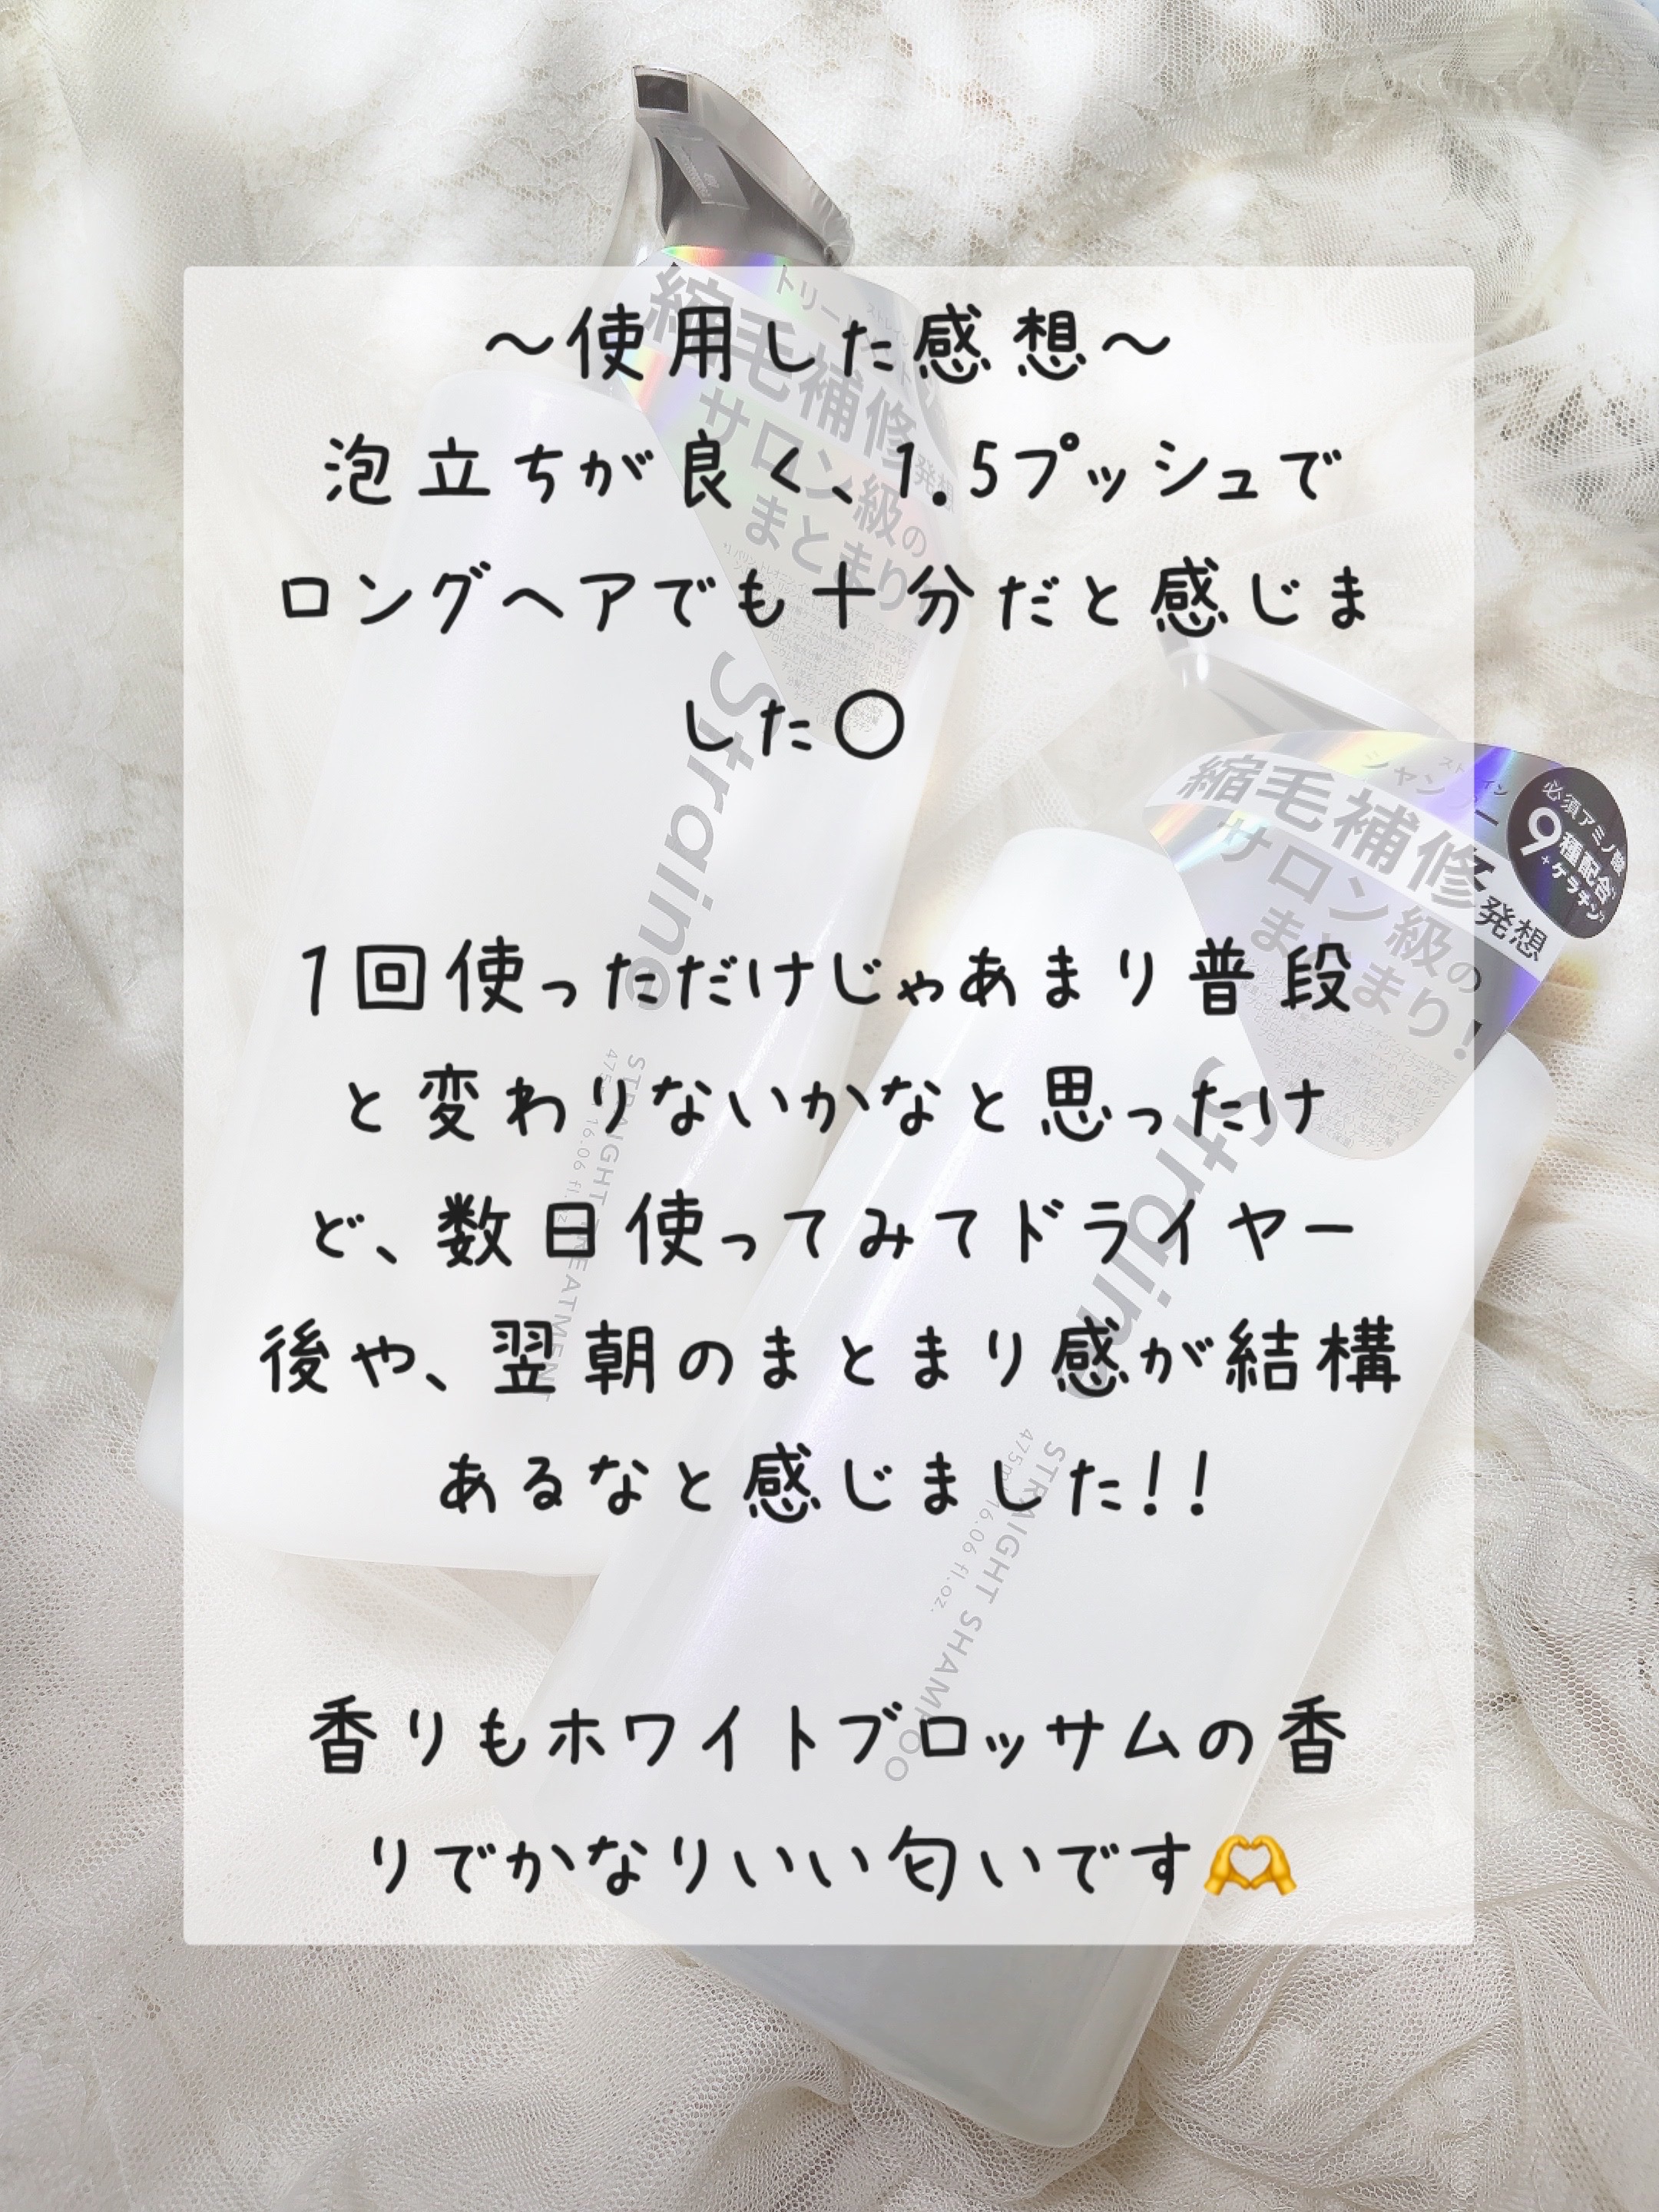 ～使用した感想～
泡立ちが良く、1.5プッシュで
ロングヘアでも十分だと感じま
した〇
1回使っただけじゃあまり普段
と変わりないかなと思ったけ
ど、数日使ってみてドライヤー
後や、翌朝のまとまり感が結構
あるなと感じました!!
香りもホワイトブロッサムの香
りでかなりいい匂いです🫶
縮毛補修発想
サロン級の
まとまり!
Straine
STRAIGHT TREATMENT
ストレイン
シャンプー
縮毛補修発想
サロン級の
まとまり!
必須アミノ酸
9種配合
+ケラチン
Straine
STRAIGHT SHAMPOO
475ml 16.06 fl.oz.